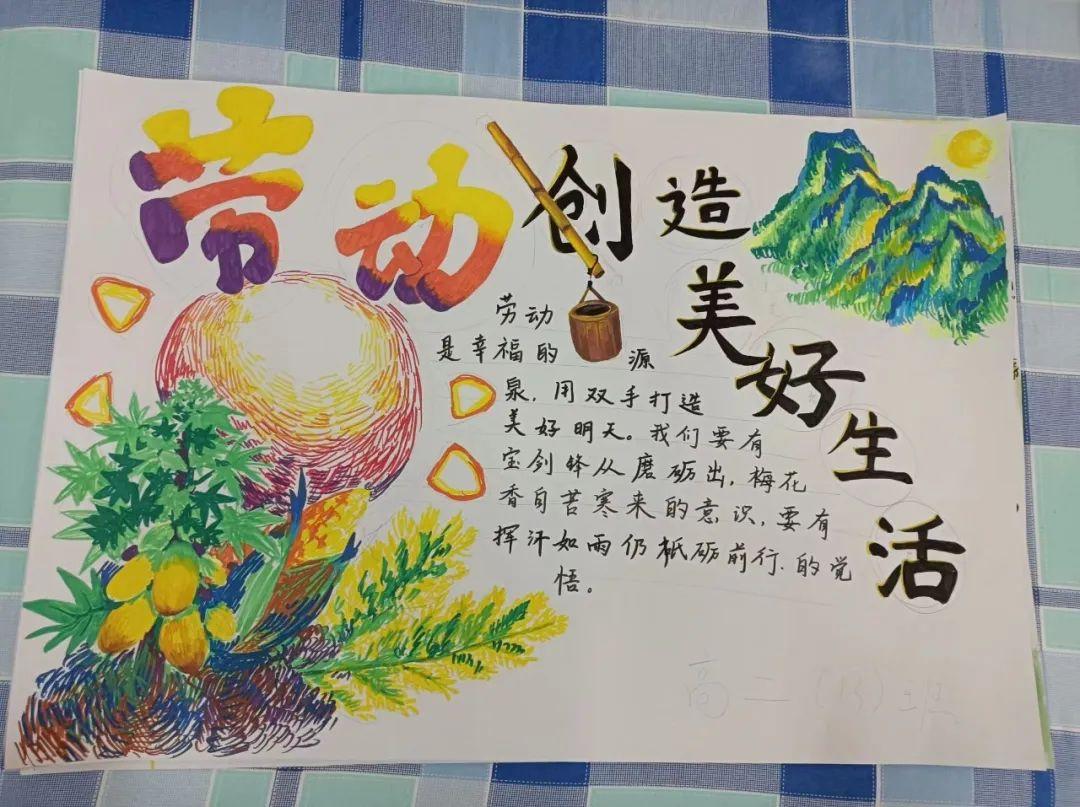 劳动创造
美好生活
劳动
是幸福的源
泉,用双手打造
美好明天。我们要有
宝剑锋从磨砺出,梅花
香自苦寒来的意识,要有
挥汗如雨仍砥砺前行、的觉
悟。
高二(13)班